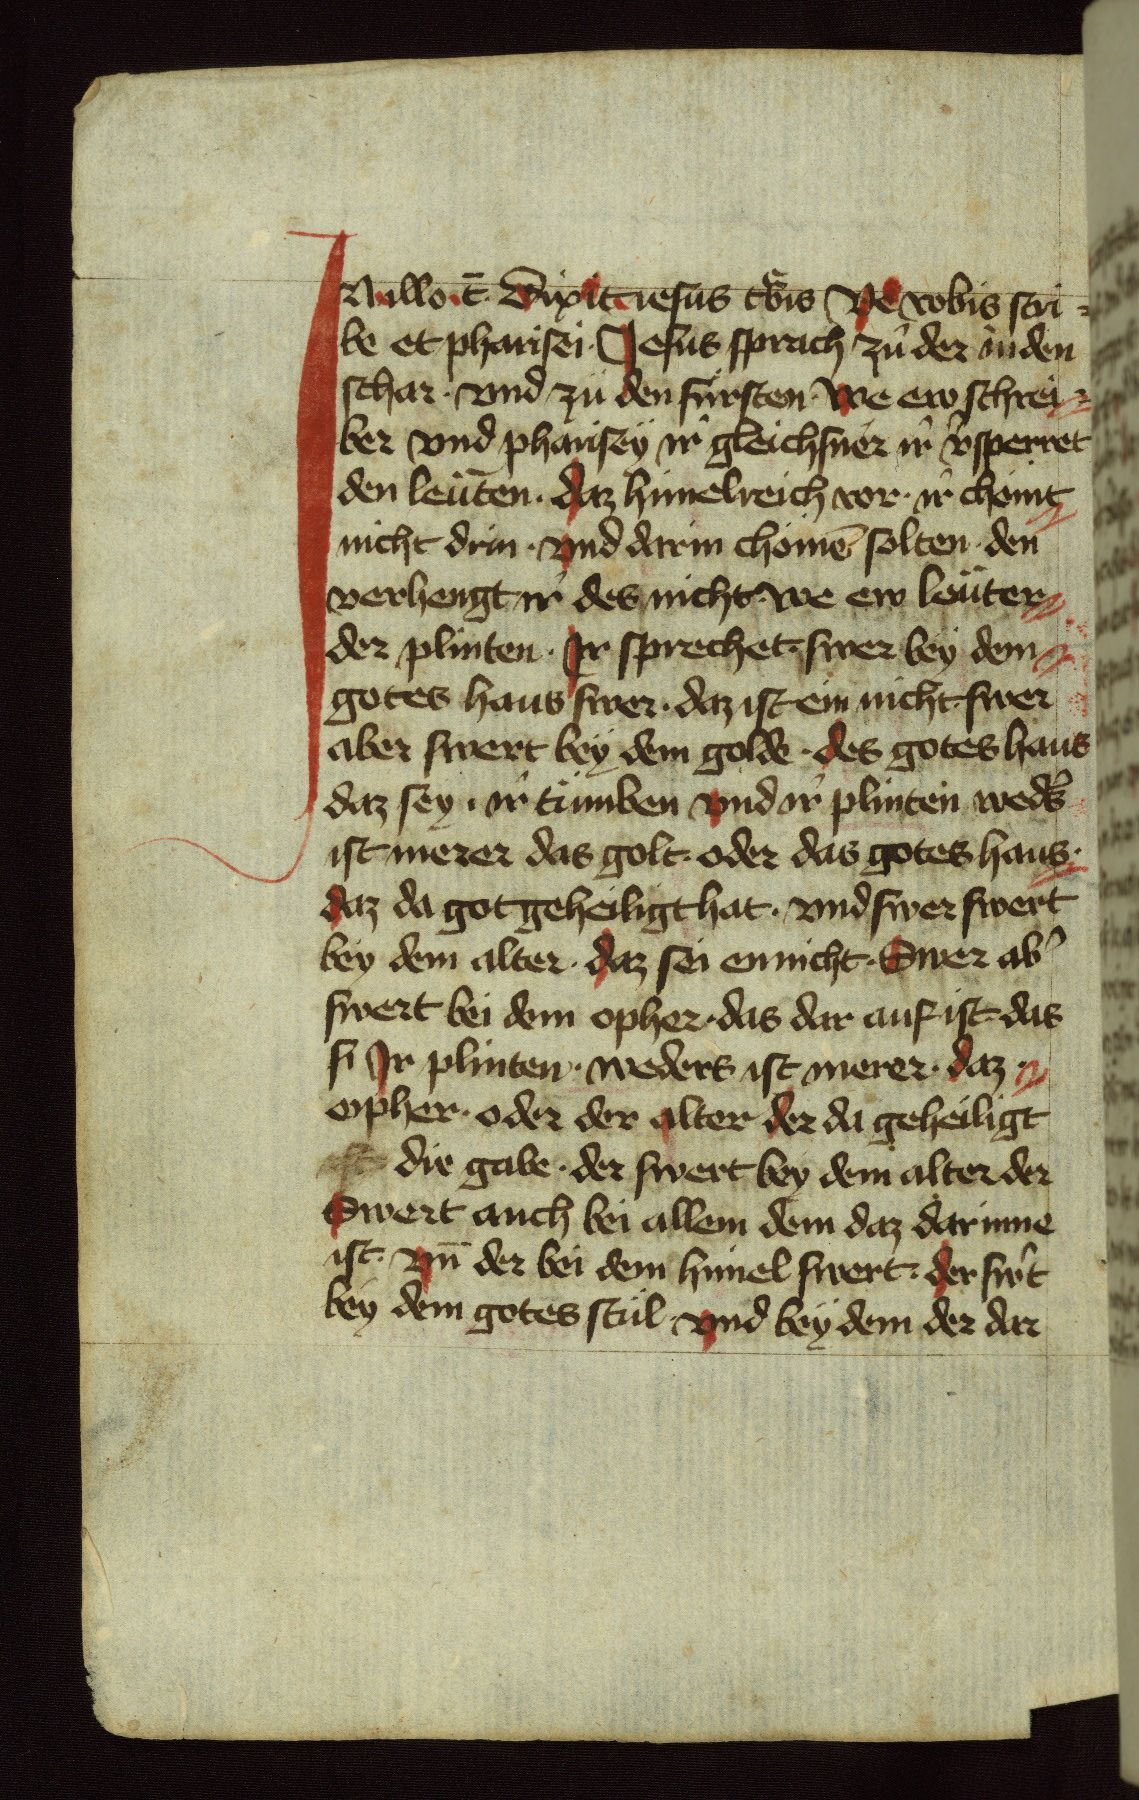 IN illo t̄. Dixit iesus tͥbis Ve vobis scri=
be et pharisei. Jesus sprach zů der iuden
schar. vnd zů den fürsten. We ew schrei=
ber vnd pharisey ir gleichsner ir v̓sperret
den leüten. daz himelreich vor. ir chömt
nicht drin. vnd darin chömē solten. den
verhengt ir des nicht. we ew leüter
der plinten. Ir sprechet. swer bey dem
gotes haus swer. daz ist ein nicht. swer
aber swert bey dem golde. des gotes haus
daz sey. ir tummben vnd ir plinten wed̓s
ist merer das golt. oder das gotes haus.
daz da got geheiligt hat. vnd swer swert
bey dem alter. daz sei ennicht. Swer ab̓
swert bei dem opher. das dar auf ist. das
si Ir plinten. weders ist merer. daz
opher. oder der alter der da geheiligt
die gabe. der swert bey dem alter der
Swert auch bei allem dem daz darinne
ist. vn̄ der bei dem himel swert. der sw̓t
bey dem gotes stůl. vnd bey dem der dar